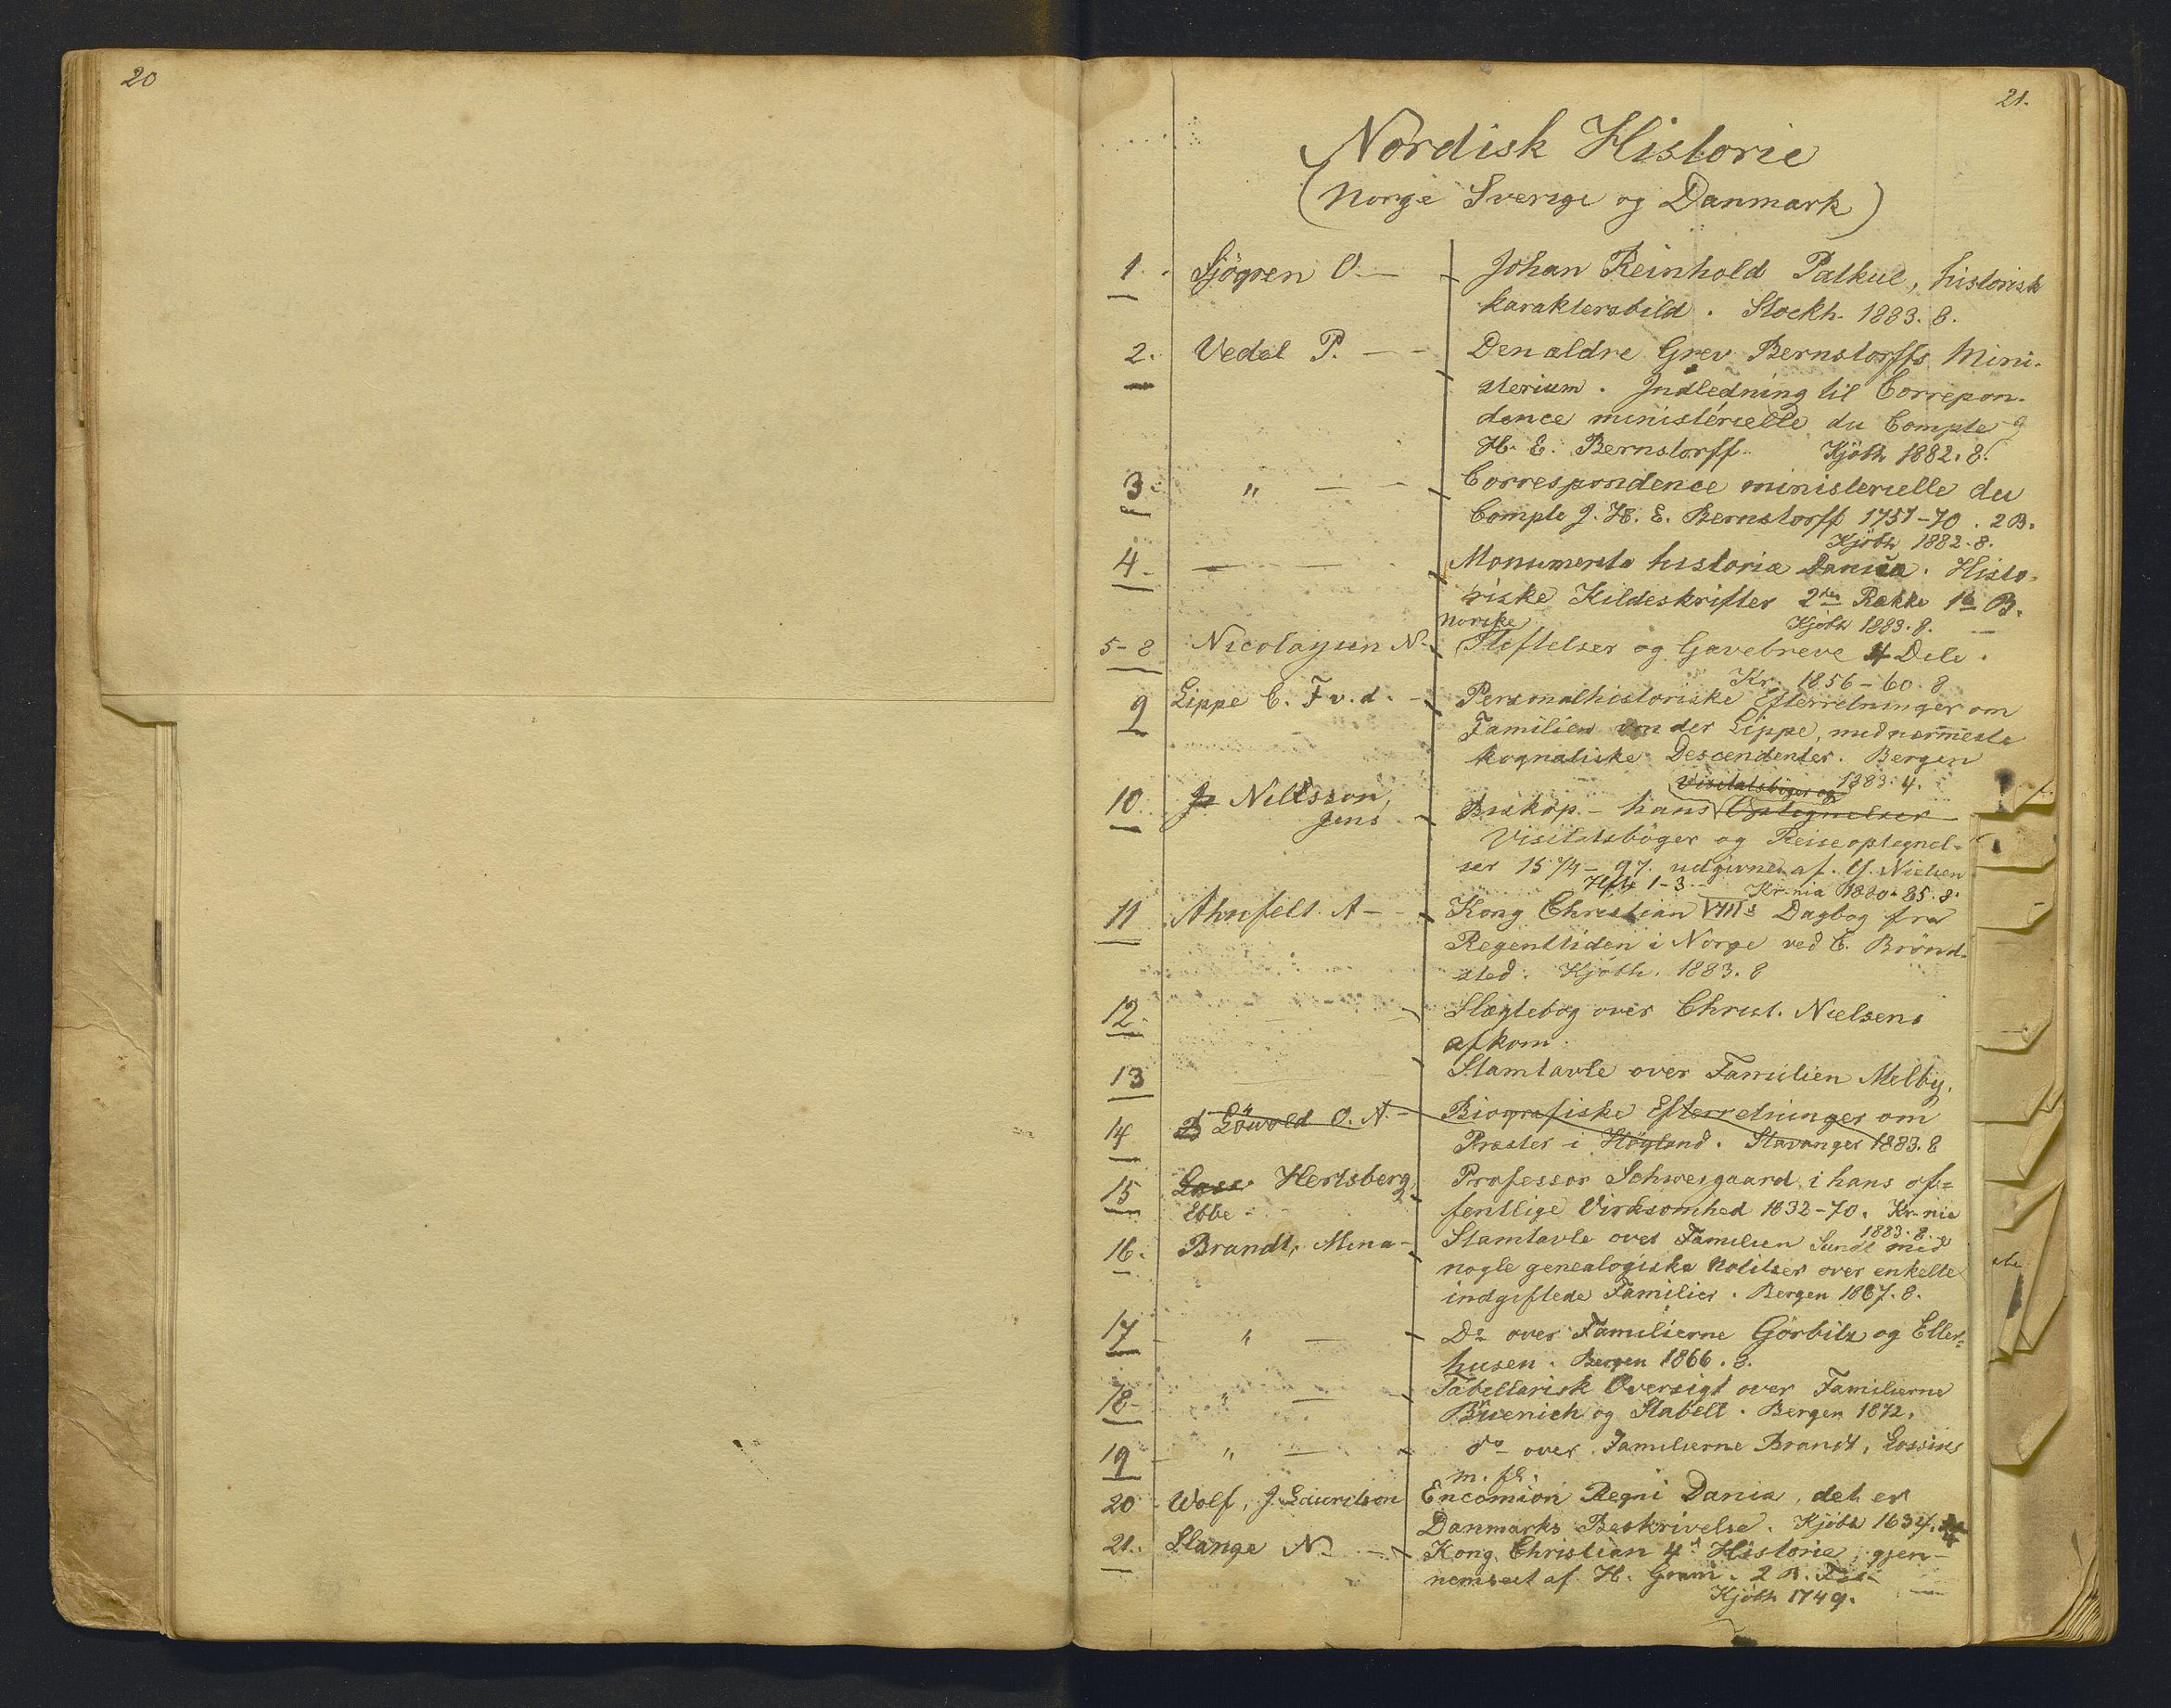 20
21.
Nordisk Historie
(Norge Sverige og Danmark)
1. Sjögren O. — Johan Reinhold Patkul, historisk
karaktersbild. Stockh. 1883. 8.
2. Vedel P. — Den ældre Grev Bernstorffs Mini-
sterium. Indledning til Correpon-
dance ministérielle du Comte J
H. E. Bernstorff. Kjöbh 1882. 8.
3. " — Correspondence ministerielle du
Comte J. H. E. Bernstorff 1751-70. 2 B.
Kjöbh 1882. 8.
4 — Monumenta historiæ Danicæ. Histo-
riske Kildeskrifter 2den Række 1te B.
Kjöbh 1883. 8.
norske
5-8 Nicolaysen N. Stiftelser og Gavebreve 4 Dele.
Kr. 1856-60. 8
9 Lippe C. F v. d. — Personalhistoriske Efterretninger om
Familien von der Lippe, med nærmeste
kognatiske Descendenter. Bergen
1883. 4.
Visitatsböger og
10 Nilssøn, Biskop - hans Optegnelser
Jens Visitatsböger og Reiseoptegnel-
ser 1574-97. udgivne af Y. Nielsen
Hft 1-3. Kr-nia 1880-85. 8.
11 Ahnfelt A — Kong Christian VIIIs Dagbog fra
Regenttiden i Norge ved C. Brönd-
sted. Kjöbh. 1883. 8
12. Slægtebog over Christ. Nielsens
afkom.
13 Stamtavle over Familien Melby.
14 Löwold O. A. - Biografiske Efterretninger om
Præster i Högland. Stavanger 1883. 8
15 Hertsberg, Professor Schweigaard i hans of-
Ebbe - fentlige Virksomhed 1832-70. Kr-nia
1883. 8.
16. Brandt, Mina - Stamtavle over Familien Sundt med
nogle genealogiske Notitser over enkelte
indgiftede Familier. Bergen 1867. 8.
17 " — Do over Familierne Görbitz og Eller-
husen. Bergen 1866. 8.
18 " — Tabellarisk Oversigt over Familierne
Büenich og Stabell. Bergen 1872.
19 " — do over Familierne Brandt, Lossius
m. fl.
20 Wolf, J. Lauritson Encomion Regni Daniæ, det er
Danmarks Beskrivelse. Kjöbh 1634. 4
21. Slange N. — Kong Christian 4s Historie, gjen-
nemseet af H. Gram. 2 B.
Kjöbh 1749.